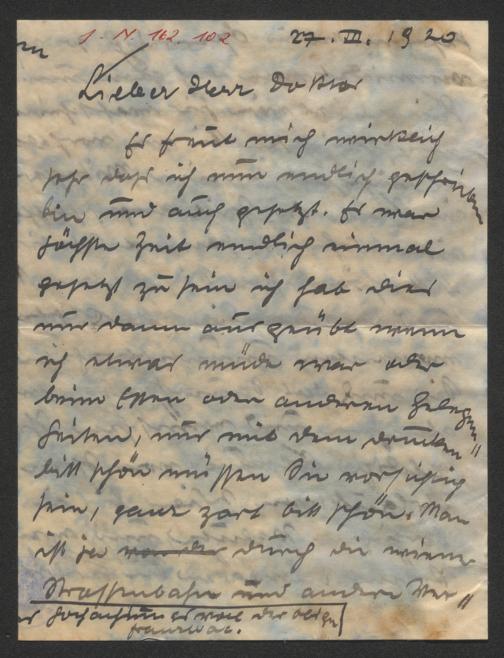 J. N 162.102
27. III. 1920
Lieber Herr Doktor
Es freut mich wirklich
sehr daß ich nun endlich geschrieben
bin und auch gesetzt. Es war
höchste Zeit endlich einmal
gesetzt zu sein ich hab dies
nur dann ausgeübt wenn
ich etwas müde war oder
beim Essen oder anderen Gelegen"
heiten, nur mit dem drucken
bitt schön müssen Sie vorsichtig
sein, ganz zart bitt schön. Man
ist ja von der durch die wiener
Strassenbahn und andere Ver"